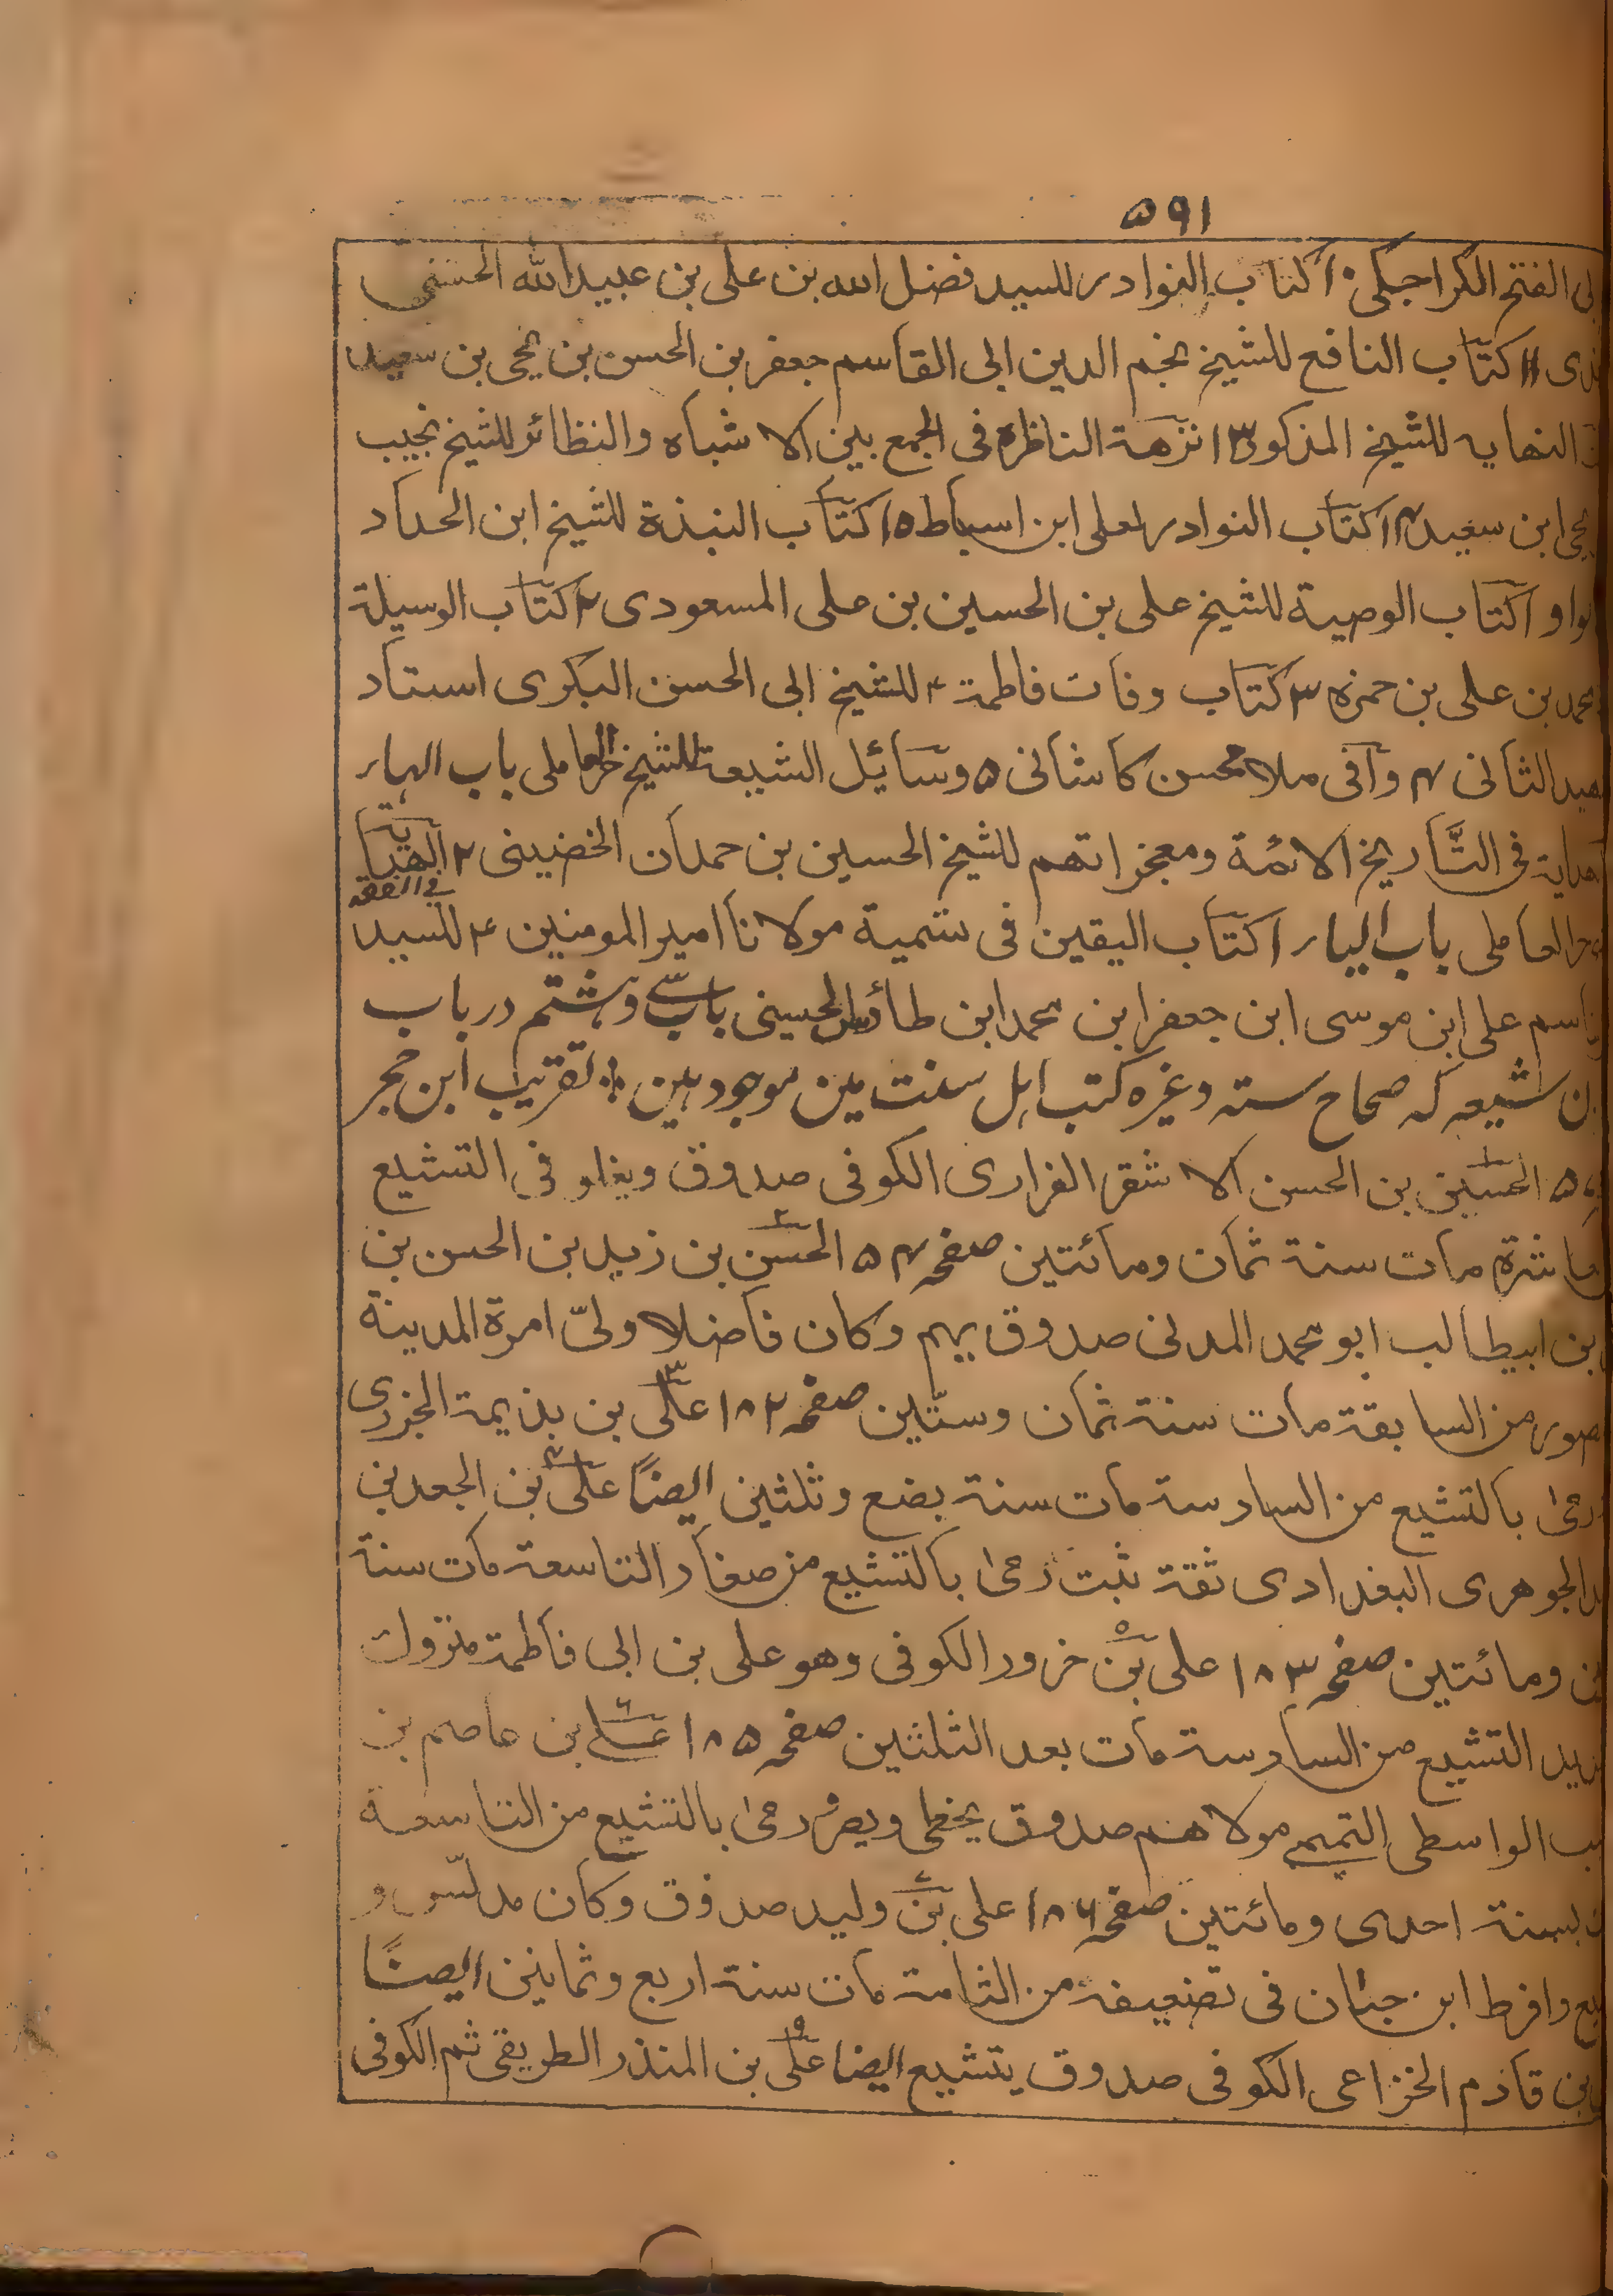 ۵۹۱
ابی الفتح الکراجکی ۱۰ کتاب النوادر للسید فضل الله بن علی بن عبید الله الحسنی
۱۱ کتاب النافع للشیخ نجم الدین ابی القاسم جعفر بن الحسن بن یحی بن سعید
النهایه للشیخ المذکور ۱۳ نزهة الناظره فی الجمع بین الاشباه والنظائر للشیخ نجیب
یحی ابن سعید ۱۴ کتاب النوادر لعلی ابن اسباط ۱۵ کتاب النبذة للشیخ ابن الحداد
الواو ۱ کتاب الوصیة للشیخ علی بن الحسین بن علی المسعودی ۲ کتاب الوسیلة
محمد بن علی بن حمزه ۳ کتاب وفات فاطمة ۴ للشیخ ابی الحسن البکری استاد
الثانی ۴ وافی ملا محسن کاشانی ۵ وسائیل الشیعة للشیخ حر العاملی باب الهاء
هدایة فی التاریخ الائمة ومعجزاتهم للشیخ الحسین بن حمدان الخضینی ۲ الهدایة
فی الفقه
حر العاملی باب الیاء ۱ کتاب الیقین فی تسمیة مولانا امیر المومنین ۴ للسید
علی ابن موسی ابن جعفر ابن محمد ابن طائوس الحسینی باب سی وهشتم در باب
شیعه که صحاح سته وغیره کتب اهل سنت مین موجود هین ٪ تقریب ابن حجر
۵ الحسین بن الحسن الاشقر الفزاری الکوفی صدوق ویغلو فی التشیع
مات سنة ثمان ومائتین صفحه ۵۴ الحسن بن زید بن الحسن بن
بن ابیطالب ابو محمد المدنی صدوق یهم وکان فاضلا ولیّ امرة المدینة
من السابقة مات سنة ثمان وستّین صفحه ۱۸۲ علی بن بذیمة الجزری
رمی بالتشیع من السادسة مات سنة بضع وثلثین ایضًا علی بن الجعد بن
الجوهری البغدادی ثقة ثبت رمی بالتشیع من صغار التاسعة مات سنة
ومائتین صفحه ۱۸۳ علی بن خرور الکوفی وهو علی بن ابی فاطمة متروك
التشیع من السادسة مات بعد الثلثین صفحه ۱۸۵ علی بن عاصم بن
الواسطی التمیمی مولاهم صدوق یخطی ویصر رمی بالتشیع من التاسعة
سنة احدی ومائتین صفحه ۱۸۶ علی بن ولید صدوق وکان مدلّس و
وافرط ابن حبّان فی تضعیفه من الثامنة مات سنة اربع وثمانین ایضًا
بن قادم الخزاعی الکوفی صدوق یتشیع ایضا علی بن المنذر الطریقی ثم الکوفی